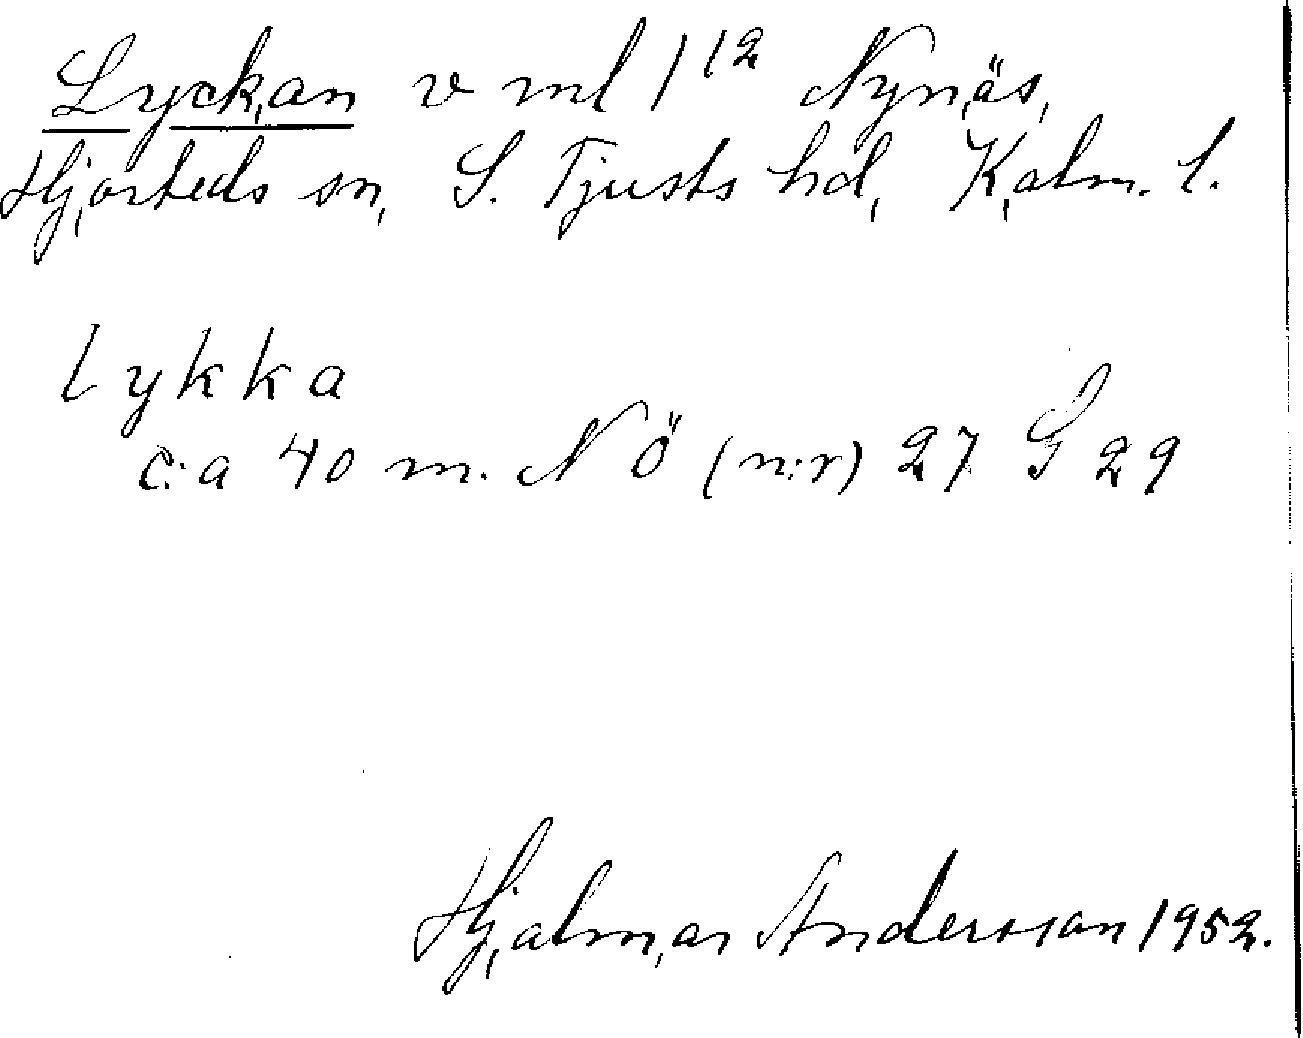 Lyckan v ml 1¹² Nynäs,
Hjorteds sn, S. Tjusts hd, Kalm. l.
lykka
c:a 40 m. NÖ (n:r) 27 G 29
Hjalmar Andersson 1952.